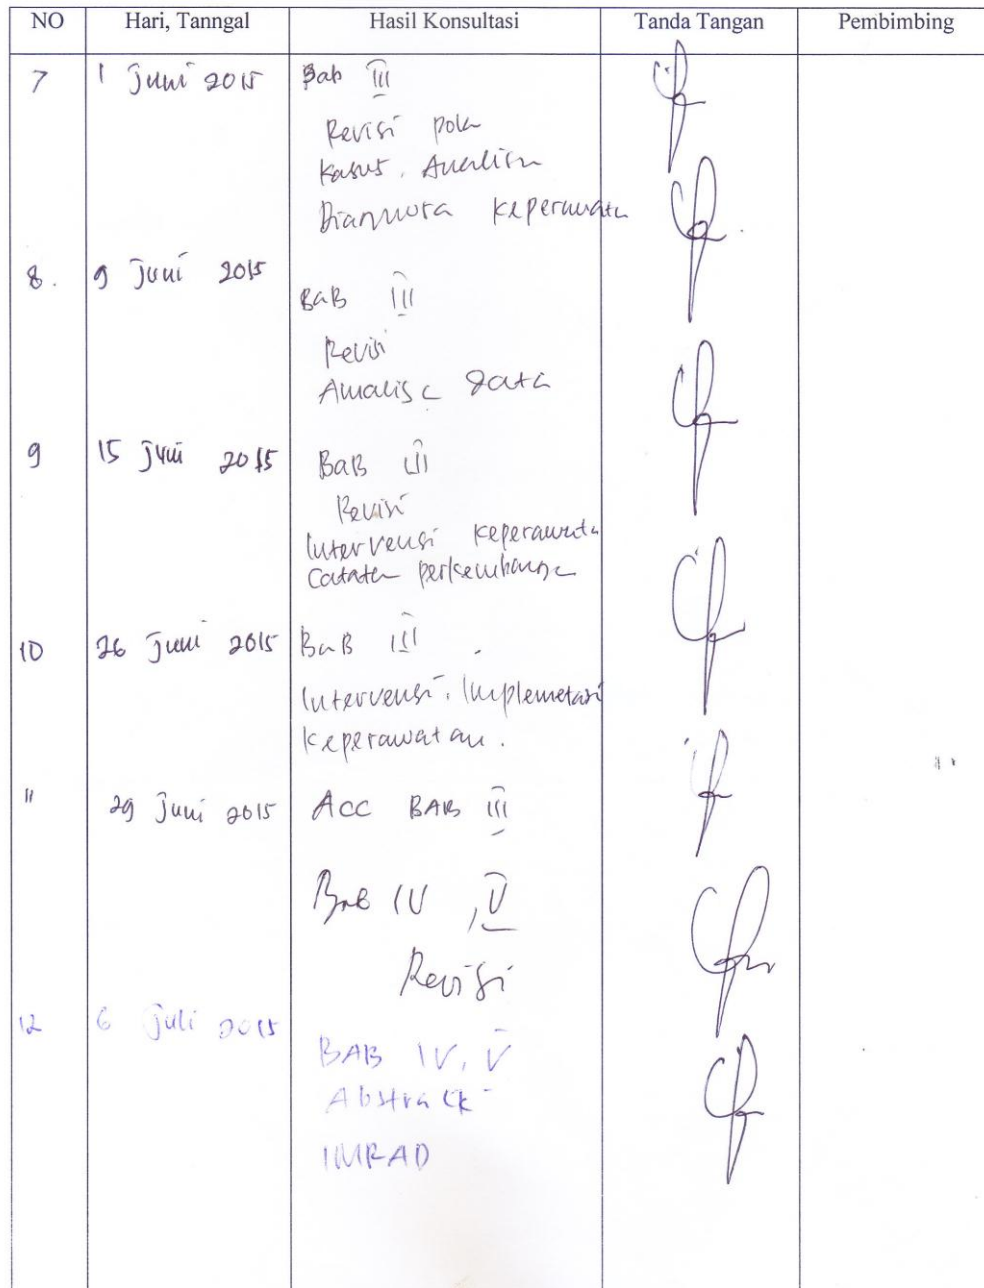 NO Hari, Tanngal Hasil Konsultasi Tanda Tangan Pembimbing
7 1 Juni 2015 Bab III
Revisi pola
Kasus, Analisa
Diagnosa Keperawata
8. 9 Juni 2015
BaB III
Revisi
Analisa Data
9 15 Juni 2015 BaB III
Revisi
Intervensi Keperawata
Catata perkembanga
10 26 Juni 2015 BaB III
Intervensi, Implemetasi
Keperawatan.
11 29 Juni 2015 Acc BAB III
BaB IV, V
Revisi
12 6 Juli 2015
BAB IV, V
Abstrack
IMRAD